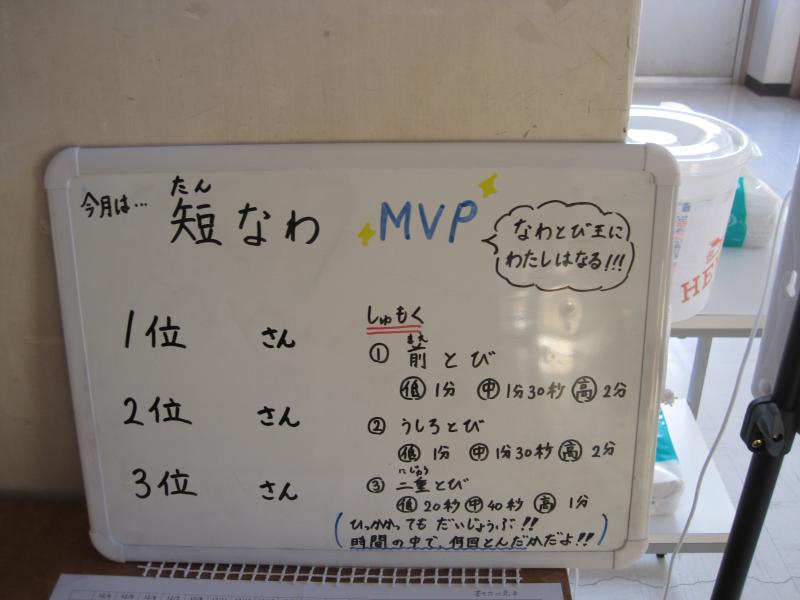 今月は… 短なわ MVP
たん
なわとび王に
わたしはなる!!!
1位 さん
2位 さん
3位 さん
しゅもく
まえ
① 前とび
低 1分 中 1分30秒 高 2分
② うしろとび
低 1分 中 1分30秒 高 2分
にじゅう
③ 二重とび
低 20秒 中 40秒 高 1分
(ひっかかっても だいじょうぶ!!
時間の中で、何回とんだかだよ!!)
HE